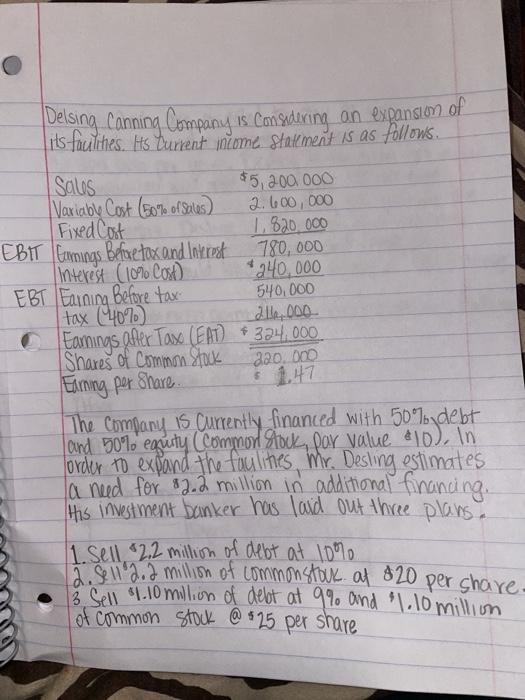 Delsing Canning Company is considering an expansion of
its faulities. Its current income statement is as follows.
Sales $5,200.000
Variably Cost (50% of sales) 2.600,000
Fixed Cost 1,820,000
EBIT Earnings Before tax and Interest 780,000
Interest (10% Cost) $240,000
EBT Earning Before tax 540,000
tax (40%) 216,000
Earnings After Tax (EAT) $324,000
Shares of Common Stock 220.000
Earning per Share. $1.47
The company is currently financed with 50% debt
and 50% equity (common stock, par value $10). In
order to expand the faulities, Mr. Desling estimates
a need for $2.2 million in additional financing.
His investment banker has laid out three plans.
1. Sell $2.2 million of debt at 10%
2. Sell $2.2 million of common stock at $20 per share.
3. Sell $1.10 million of debt at 9% and $1.10 million
of common stock @ $25 per share